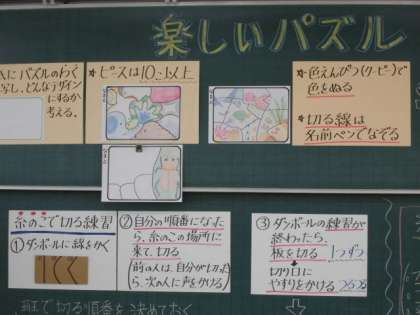 楽しいパズル
にパズルのわく
写し、どんなデザイン
にするか
考える。
＊ピースは10こ以上
＊色えんぴつ(クーピー)で
色をぬる
＊切る線は
名前ペンでなぞる
糸のこで切る練習
①ダンボールに線をかく
②自分の順番になった
ら、糸のこの場所に
来て、切る
(前の人は、自分が切った
ら、次の人に声をかける)
③ダンボールの練習が
終わったら、
板を切る 1つずつ
切り口に
やすりをかける
班で切る順番を決めておく